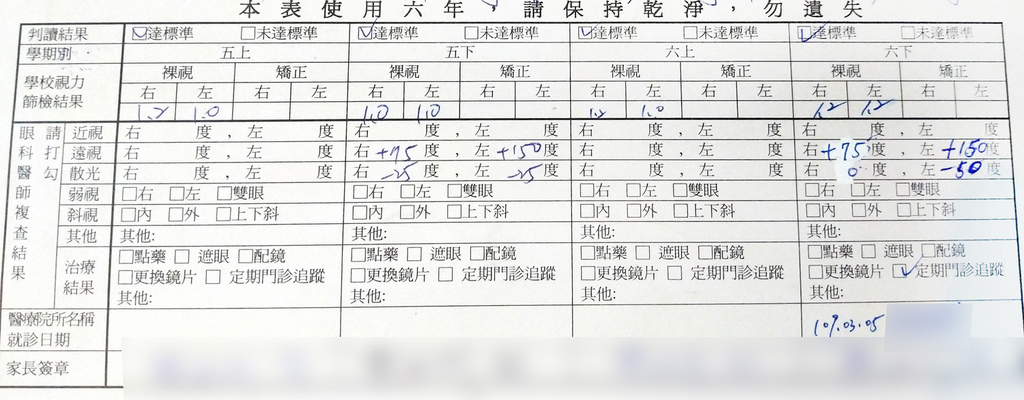 本表使用六年,請保持乾淨,勿遺失
判讀結果 ☑達標準 □未達標準 ☑達標準 □未達標準 ☑達標準 □未達標準 ☑達標準 □未達標準
學期別 五上 五下 六上 六下
學校視力篩檢結果 裸視 矯正 裸視 矯正 裸視 矯正 裸視 矯正
右 左 右 左 右 左 右 左 右 左 右 左 右 左 右 左
1.2 1.0 1.0 1.0 1.2 1.0 1.2 1.2
眼科醫師複查結果 請打勾
近視 右 度,左 度 右 度,左 度 右 度,左 度 右 度,左 度
遠視 右 度,左 度 右 +75 度,左 +150 度 右 度,左 度 右 +75 度,左 +150 度
散光 右 度,左 度 右 -25 度,左 -25 度 右 度,左 度 右 0 度,左 -50 度
弱視 □右 □左 □雙眼 □右 □左 □雙眼 □右 □左 □雙眼 □右 □左 □雙眼
斜視 □內 □外 □上下斜 □內 □外 □上下斜 □內 □外 □上下斜 □內 □外 □上下斜
其他 其他: 其他: 其他: 其他:
治療結果 □點藥 □遮眼 □配鏡 □點藥 □遮眼 □配鏡 □點藥 □遮眼 □配鏡 □點藥 □遮眼 □配鏡
□更換鏡片 □定期門診追蹤 □更換鏡片 □定期門診追蹤 □更換鏡片 □定期門診追蹤 □更換鏡片 ☑定期門診追蹤
其他: 其他: 其他: 其他:
醫療院所名稱
就診日期 109.03.05
家長簽章